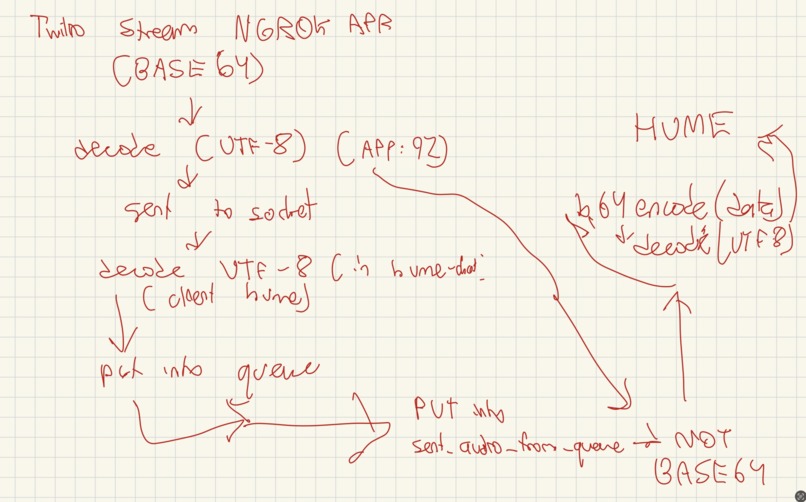 Twilio Stream NGROK APP
(BASE 64)
decode (UTF-8) (APP: 92)
sent to socket
decode UTF-8 (in hume-chat
(client hume)
put into queue
PUT into
sent_audio_from_queue → NOT
BASE64
HUME
b64 encode (data)
decode (UTF8)